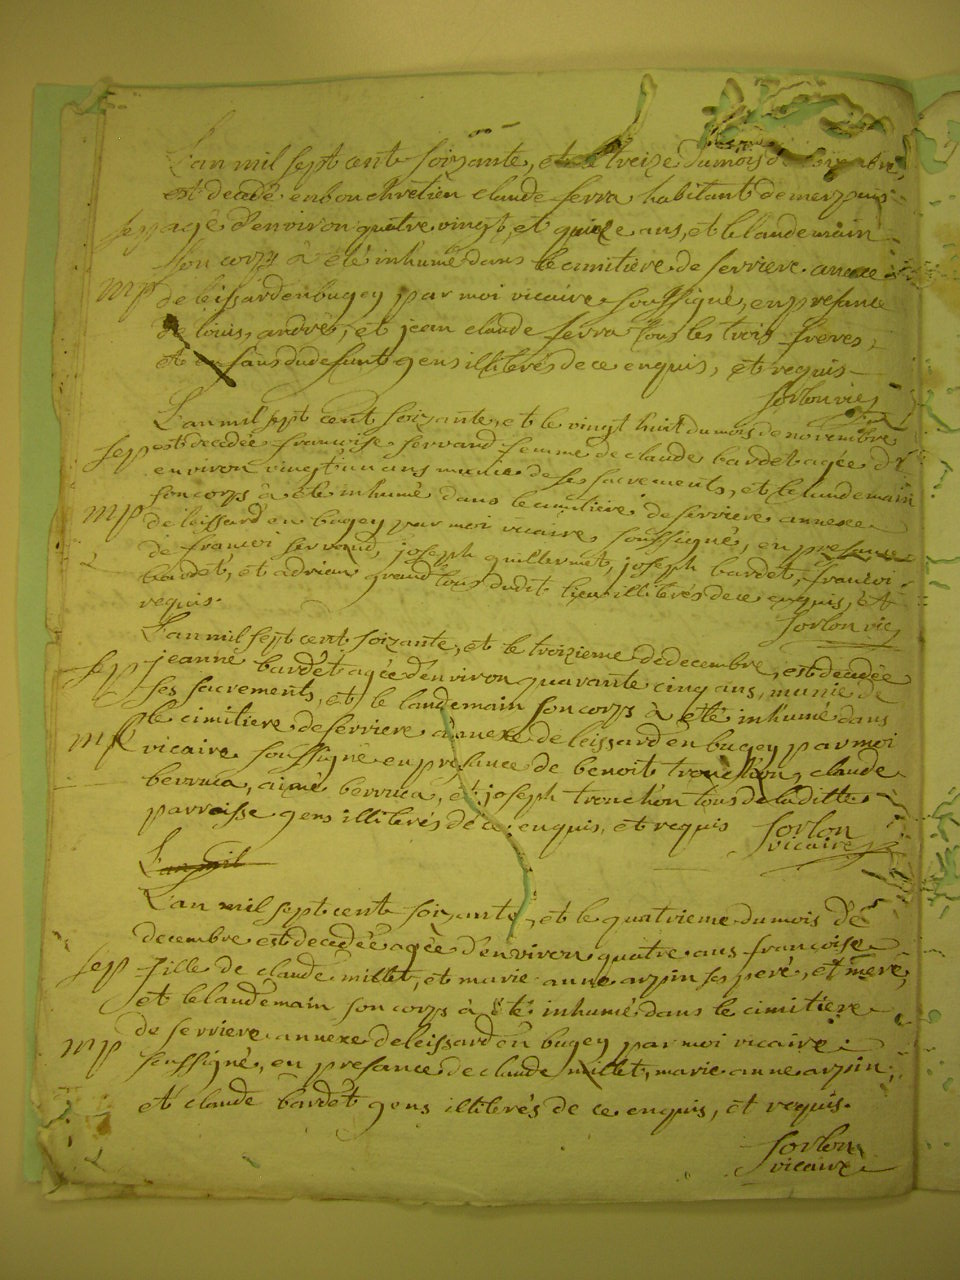 L'an mil sept cent soixante, et le treize du mois de
est decedé en bon chretien claude serra habitant de merpuis
sep agé d'environ quatre vingt, et quinze ans, et le landemain
son corps à eté inhumé dans le cimitière de serriere annexe
mp de leissard en bugey par moi vicaire soussigné, en presance
de louis, andré, et jean claude serra tous les trois frères,
et enfans du defunt gens illiterés de ce enquis, et requis
sorlon vic
L'an mil sept cent soizante, et le vingt huit du mois de novembre
sep est decedée francoise servand femme de claude bardet agée d'
environ vingt un ans munie de ses sacrements, et le landemain
son corps à eté inhumé dans le cimitière de serriere annexe
mp de leissard en bugey par moi vicaire soussigné, en presance
de francoi servand, joseph quillermet, joseph bardet, francoi
bardet, et adrian grand tous dudit lieu illiterés de ce enquis, et
requis.
sorlon vic
L'an mil sept cent soizante, et le troizieme de decembre, est decedée
sep jeanne bardet agée d'environ quarante cinq ans, munie de
ses sacrements, et le landemain son corps à eté inhumé dans
le cimitiere de serriere annexe de leissard en bugey par moi
mp vicaire soussigné en presance de benoit tronchon, claude
berruca, aimé berruca, et joseph tronchon tous de la ditte
parroisse gens illiterés de ce enquis, et requis
sorlon
vicaire
L'an mil
L'an mil sept cent soizante, et le quatrieme du mois de
decembre est decedée agée d'environ quatre ans francoise
sep fille de claude millet, et marie anne arpin ses peré, et meré,
et le landemain son corps à eté inhumé dans le cimitiere
de serriere annexe de leissard en bugey par moi vicaire
mp soussigné, en presance de claude millet, marie anne arpin,
et claude bardet gens illiterés de ce enquis, et requis.
sorlon
vicaire